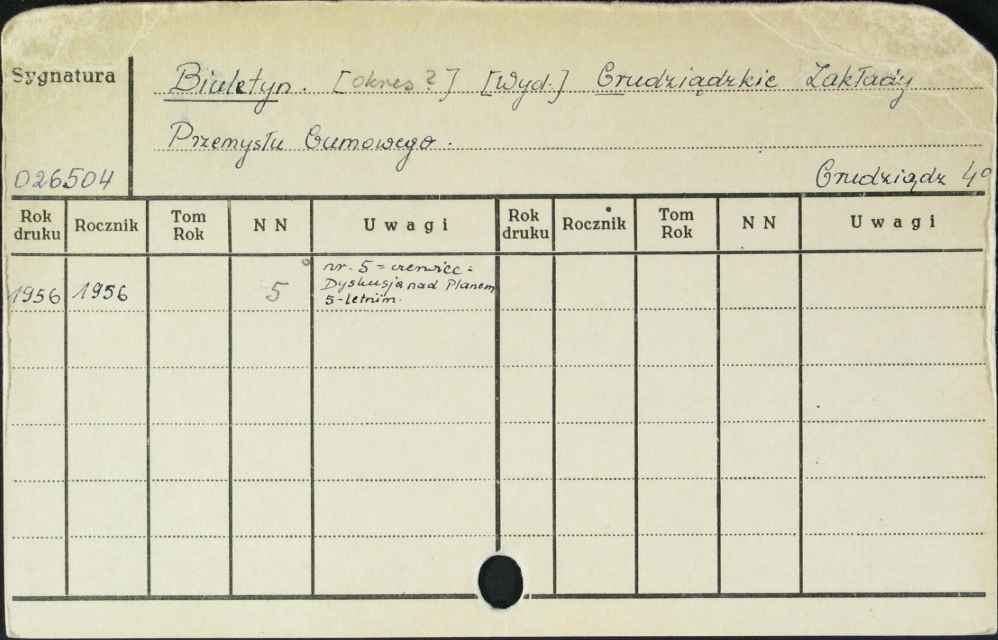 Sygnatura
Biuletyn. [okres?] [Wyd.] Grudziądzkie Zakłady
Przemysłu Gumowego.
026504
Grudziądz 4°
Rok druku Rocznik Tom Rok N N Uwagi Rok druku Rocznik Tom Rok N N Uwagi
1956 1956 5 nr. 5 = czerwiec =
Dyskusja nad Planem
5-letnim.